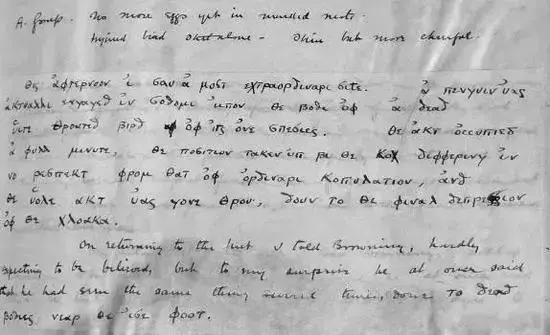 A. Group. No more eggs yet in marked nests.
Injured bird sketalone – Thin but more cheerful.
θις ἀφτερνοον ἰ σαυ ἀ μοστ εχτραορδιναρι σιτε. ἀ πενγυιν ὑας
ἀκτυαλλι ενγαγεδ ἰν σοδομι ὐπον θε βοδι ὀφ ἀ δεαδ
ὑιτε θροατεδ βιρδ ὀφ ἰτς ὀνε σπεσιες. θε ἀκτ ὀccυπιεδ
ἀ φυλλ μινυτε, θε ποσιτιον τακεν ὐπ βι θε κοκ διφφερινγ ἰν
νο ρεσπεκτ φρομ θατ ὀφ ὀρδιναρι κοπυλατιον, ἀνδ
θε ὑολε ἀκτ ὑας γονε θρου, δουν το θε φιναλ δεπρεσσιον
ὀφ θε χλοακα.
On returning to the hut I told Browning, hardly
expecting to be believed, but to my surprise he at once said
that he had seen the same thing several times, done το δεαδ
βοδιες νεαρ θε ἰσε φοοτ.